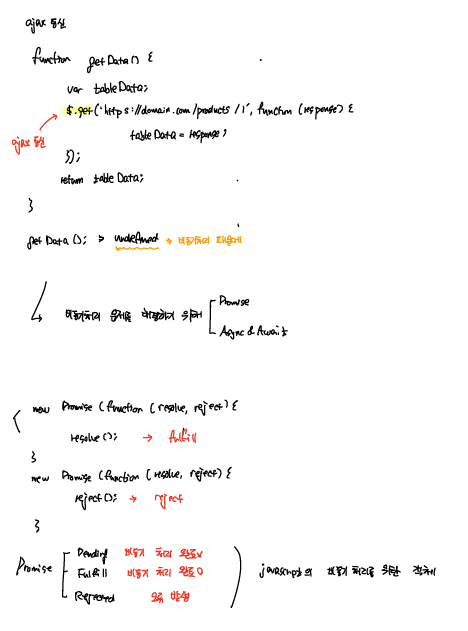 ajax 통신
function getData() {
var tableData;
$.get('https://domain.com/products/1', function (response) {
tableData = response;
ajax 통신
});
return tableData;
}
getData(); > undefined → 비동기처리 때문에
비동기처리 문제를 해결하기 위해
Promise
Async & Await
new Promise (function (resolve, reject) {
resolve(); → fulfill
}
new Promise (function (resolve, reject) {
reject(); → reject
}
Promise
Pending 비동기 처리 완료x
Fulfill 비동기 처리 완료O
Rejected 오류 발생
javascript의 비동기 처리를 위한 객체